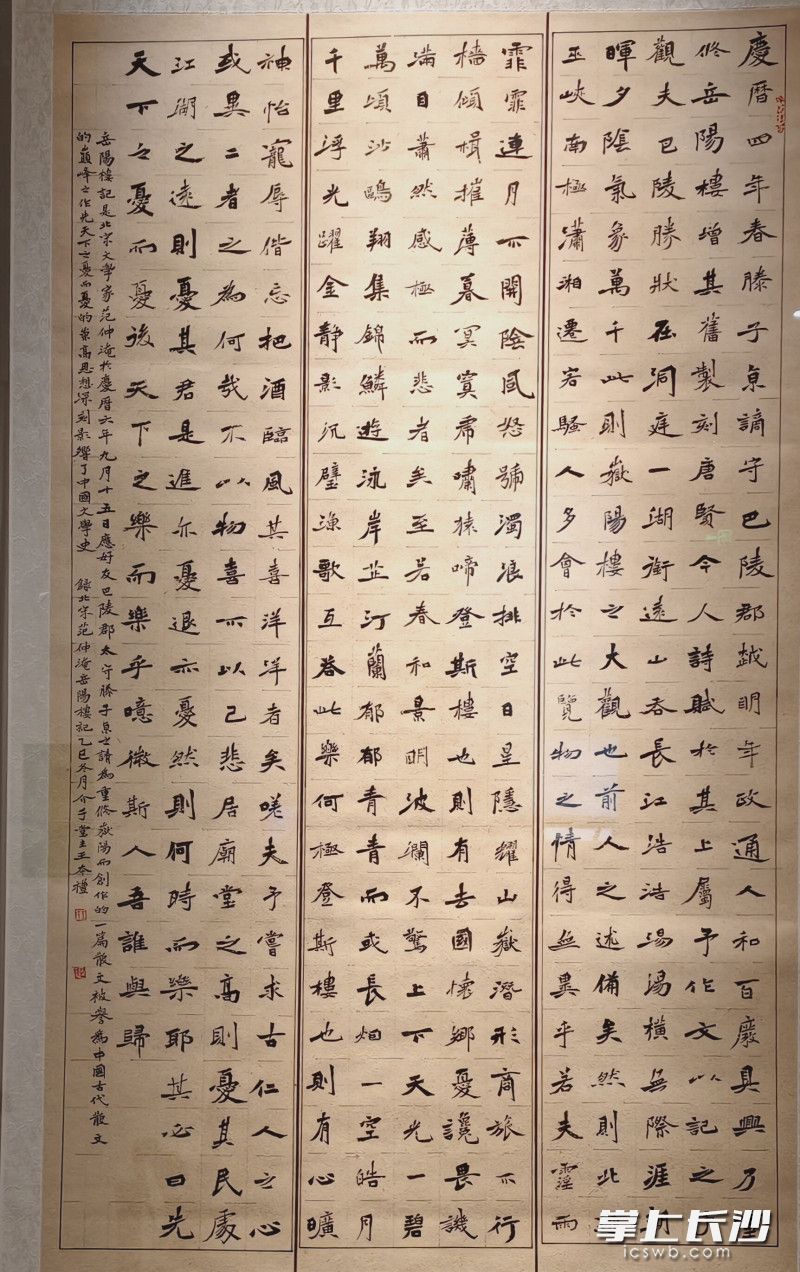 慶曆四年春滕子京謫守巴陵郡越明年政通人和百廢具興乃重
修岳陽樓增其舊製刻唐賢今人詩賦於其上屬予作文以記之
觀夫巴陵勝狀在洞庭一湖銜遠山吞長江浩浩湯湯橫無際涯朝
暉夕陰氣象萬千此則嶽陽樓之大觀也前人之述備矣然則北
巫峽南極瀟湘遷客騷人多會於此覽物之情得無異乎若夫霪雨
霏霏連月不開陰風怒號濁浪排空日星隱耀山嶽潛形商旅不行
檣傾楫摧薄暮冥冥虎嘯猿啼登斯樓也則有去國懷鄉憂讒畏譏
滿目蕭然感極而悲者矣至若春和景明波瀾不驚上下天光一碧
萬頃沙鷗翔集錦鱗遊泳岸芷汀蘭郁郁青青而或長烟一空皓月
千里浮光躍金靜影沉璧漁歌互答此樂何極登斯樓也則有心曠
神怡寵辱偕忘把酒臨風其喜洋洋者矣嗟夫予嘗求古仁人之心
或異二者之為何哉不以物喜不以己悲居廟堂之高則憂其民處
江湖之遠則憂其君是進亦憂退亦憂然則何時而樂耶其必曰先
天下之憂而憂後天下之樂而樂乎噫微斯人吾誰與歸
岳陽樓記是北宋文學家范仲淹於慶曆六年九月十五日應好友巴陵郡太守滕子京之請為重修嶽陽而創作的一篇散文被譽為中國古代散文
的巔峰之作先天下之憂而憂的崇高思想深刻影響了中國文學史 錄北宋范仲淹岳陽樓記乙巳冬月介子堂主王奉禮
掌上长沙
icswb.com